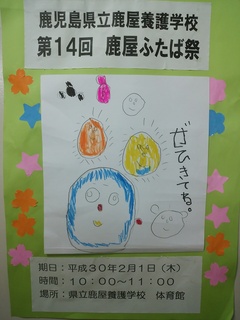 鹿児島県立鹿屋養護学校
第14回 鹿屋ふたば祭
ぜひきてね。
期日：平成30年2月1日（木）
時間：10：00～11：00
場所：県立鹿屋養護学校 体育館